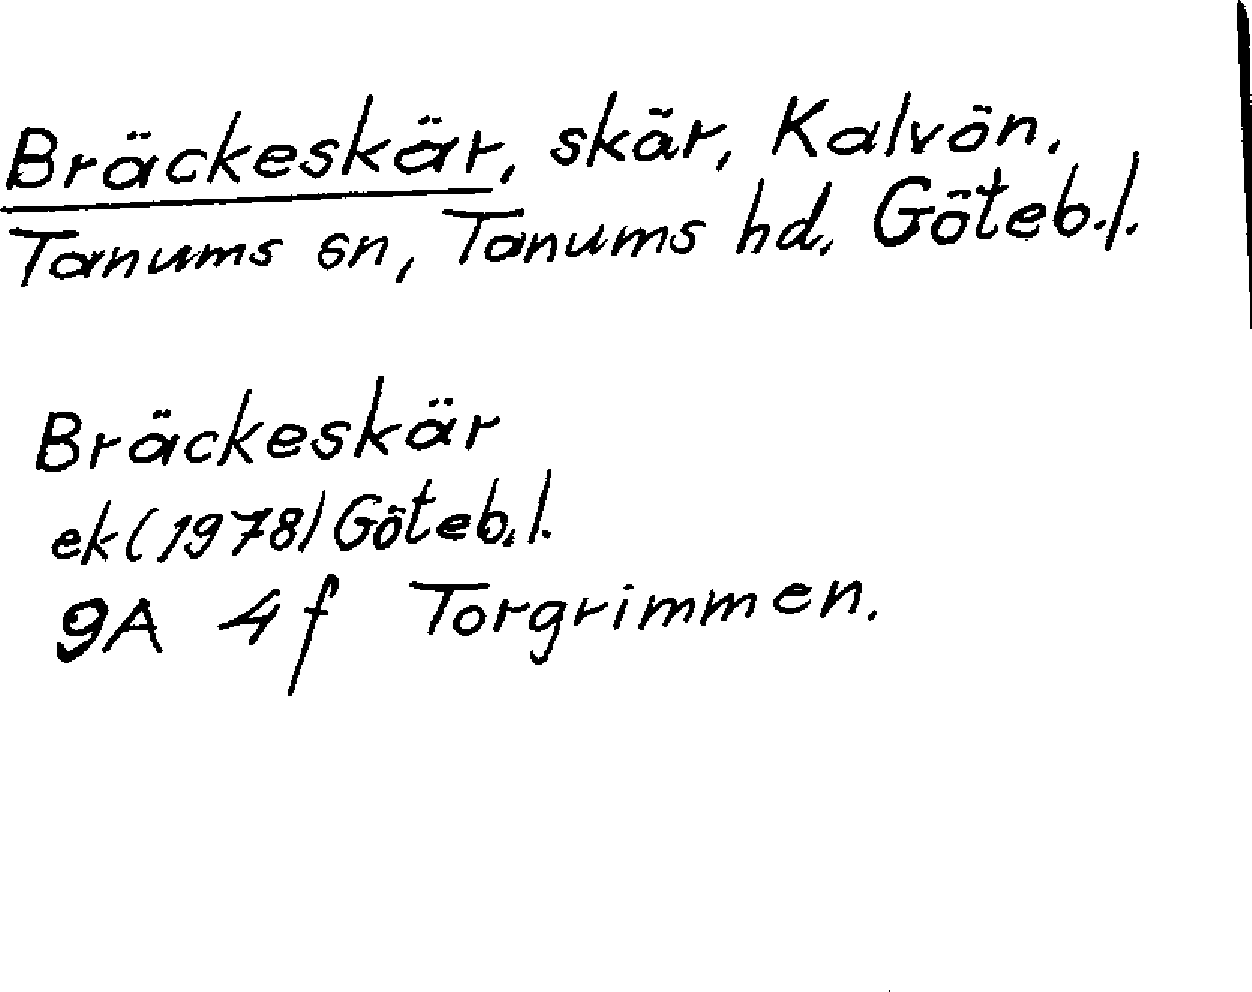 Bräckeskär, skär, Kalvön.
Tanums sn, Tanums hd. Göteb.l.
Bräckeskär
ek (1978) Göteb.l.
9A 4f Torgrimmen.